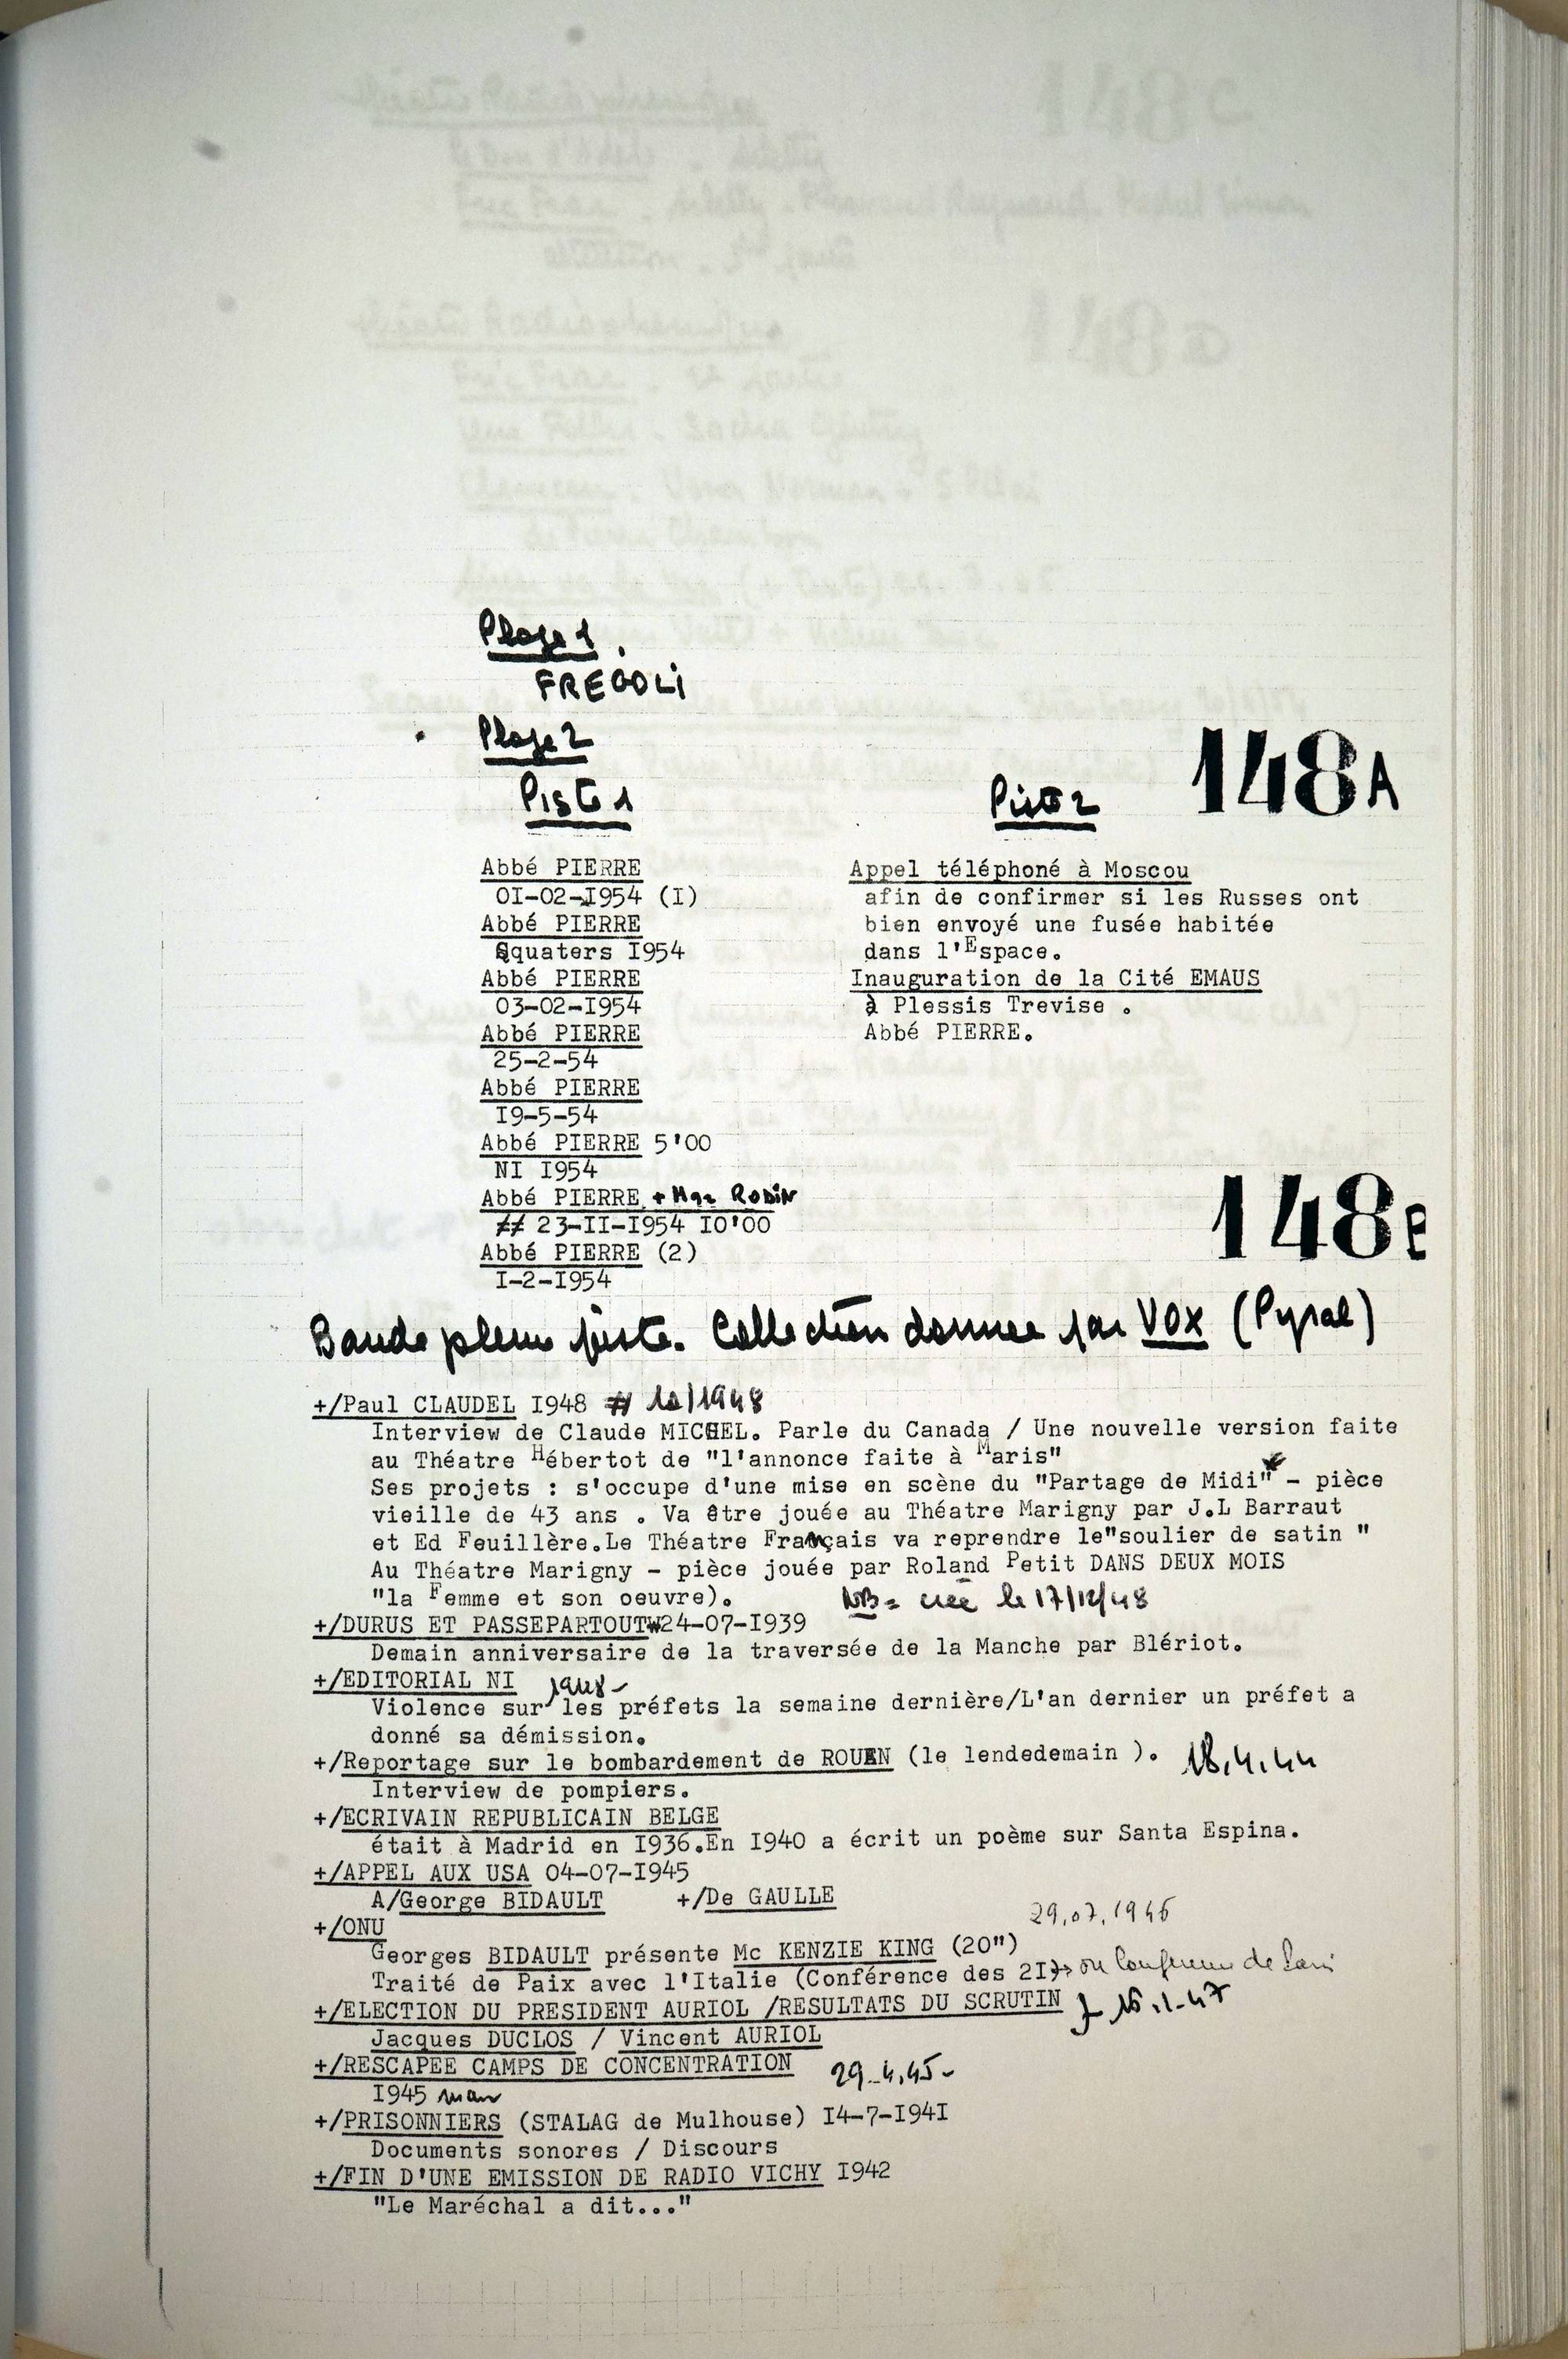 Plage 1
FREGOLI
Plage 2
Piste 1
Piste 2
148A
Abbé PIERRE
OI-02-I954 (I)
Abbé PIERRE
Squaters I954
Abbé PIERRE
03-02-I954
Abbé PIERRE
25-2-54
Abbé PIERRE
I9-5-54
Abbé PIERRE 5'00
NI I954
Abbé PIERRE + Mgr RODIN
23-II-I954 I0'00
Abbé PIERRE (2)
I-2-I954
Appel téléphoné à Moscou
afin de confirmer si les Russes ont
bien envoyé une fusée habitée
dans l'Espace.
Inauguration de la Cité EMAUS
à Plessis Trevise .
Abbé PIERRE.
148B
Bande pleine piste. Collection donnée par VOX (Pyral)
+/Paul CLAUDEL I948 # 10/1948
Interview de Claude MICHEL. Parle du Canada / Une nouvelle version faite
au Théatre Hébertot de "l'annonce faite à Maris"
Ses projets : s'occupe d'une mise en scène du "Partage de Midi" - pièce
vieille de 43 ans . Va être jouée au Théatre Marigny par J.L Barraut
et Ed Feuillère.Le Théatre Français va reprendre le"soulier de satin "
Au Théatre Marigny - pièce jouée par Roland Petit DANS DEUX MOIS
"la Femme et son oeuvre). NB = créé le 17/12/48
+/DURUS ET PASSEPARTOUT 24-07-I939
Demain anniversaire de la traversée de la Manche par Blériot.
+/EDITORIAL NI 1948-
Violence sur les préfets la semaine dernière/L'an dernier un préfet a
donné sa démission.
+/Reportage sur le bombardement de ROUEN (le lendedemain ). 18.4.44
Interview de pompiers.
+/ECRIVAIN REPUBLICAIN BELGE
était à Madrid en I936.En I940 a écrit un poème sur Santa Espina.
+/APPEL AUX USA 04-07-I945
A/George BIDAULT +/De GAULLE
+/ONU 29.07.1946
Georges BIDAULT présente Mc KENZIE KING (20")
Traité de Paix avec l'Italie (Conférence des 2I)→ ou Conférence de Paris
+/ELECTION DU PRESIDENT AURIOL /RESULTATS DU SCRUTIN 16.1.47
Jacques DUCLOS / Vincent AURIOL
+/RESCAPEE CAMPS DE CONCENTRATION 29.4.45-
I945
+/PRISONNIERS (STALAG de Mulhouse) I4-7-I94I
Documents sonores / Discours
+/FIN D'UNE EMISSION DE RADIO VICHY I942
"Le Maréchal a dit..."